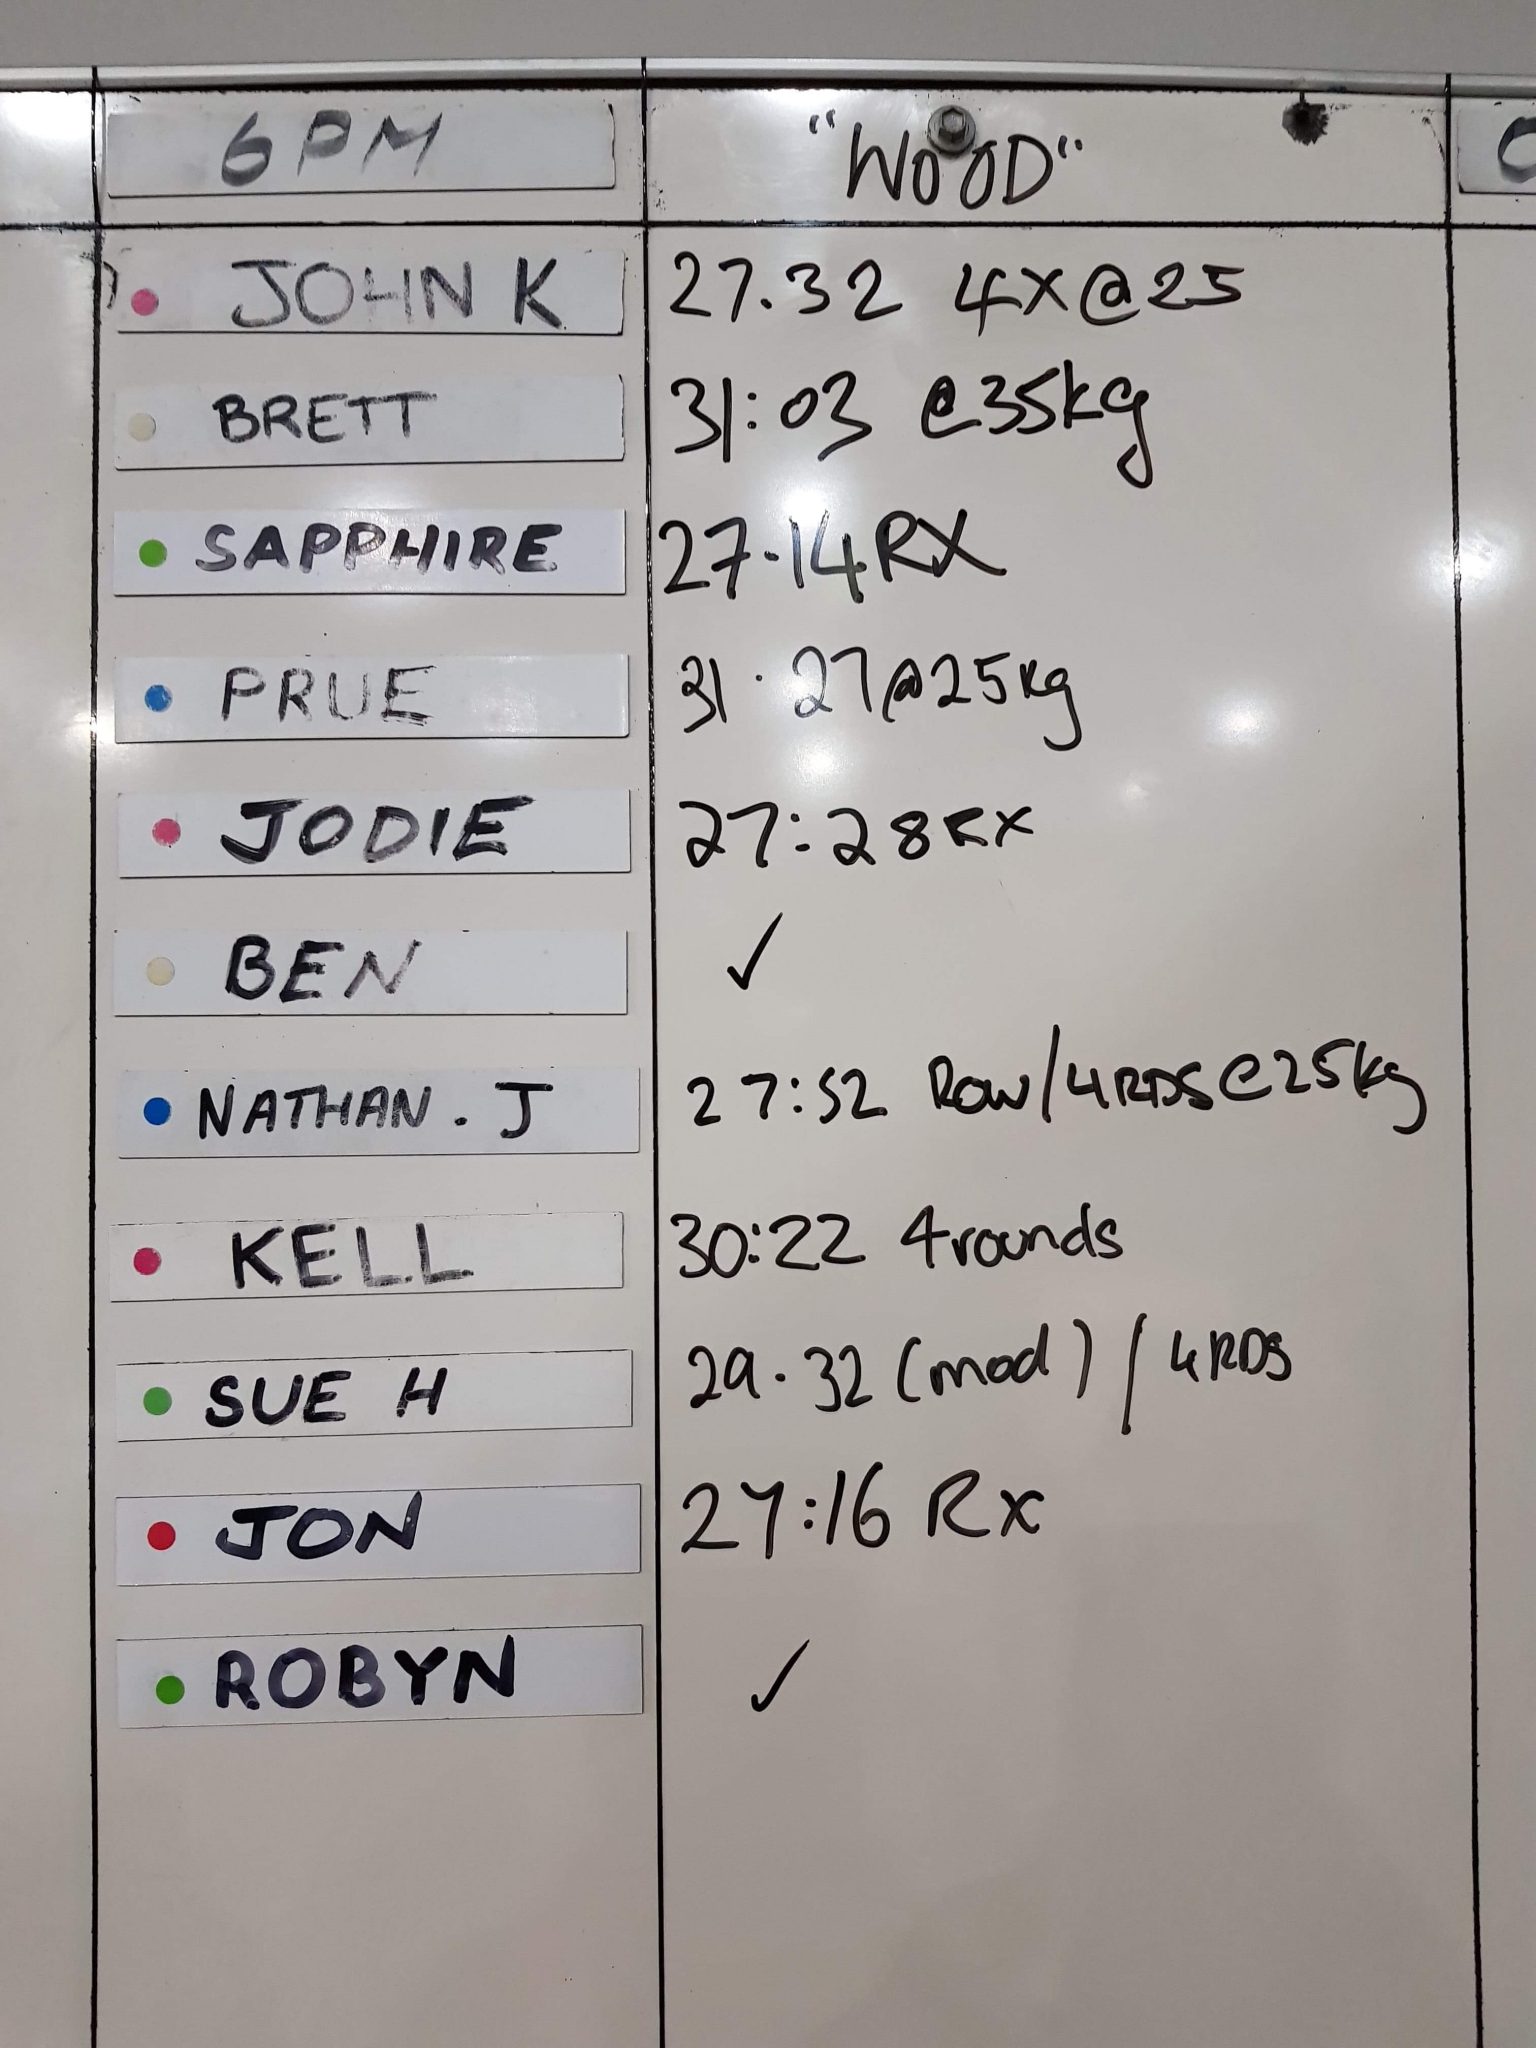 6PM "WOOD"
JOHN K 27.32 4X@25
BRETT 31:03 @35kg
SAPPHIRE 27.14 RX
PRUE 31.27@25kg
JODIE 27:28 RX
BEN ✓
NATHAN.J 27:52 ROW/4RDS@25kg
KELL 30:22 4rounds
SUE H 29.32 (mod) / 4RDS
JON 27:16 Rx
ROBYN ✓